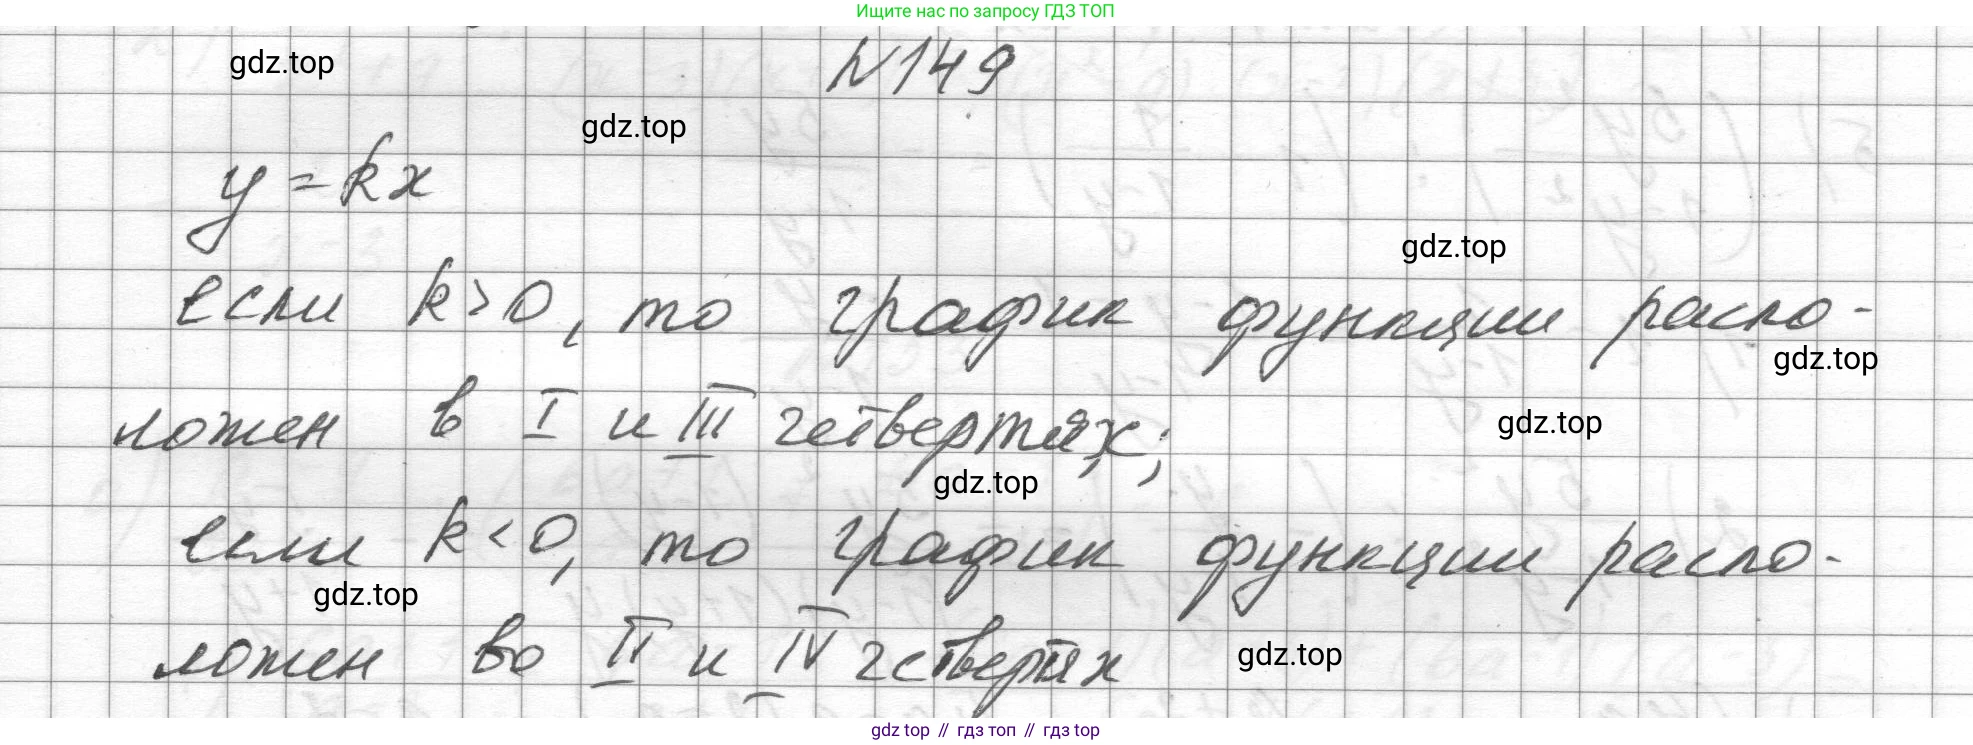 Ищите нас по запросу ГДЗ ТОП
N149
gdz.top
gdz.top
y = kx
gdz.top
если k>0, то график функции распо-
gdz.top
ложен в I и III четвертях;
gdz.top
gdz.top
если k<0, то график функции распо-
gdz.top
ложен во II и IV четвертях
gdz.top
gdz top // гдз топ // гдз top